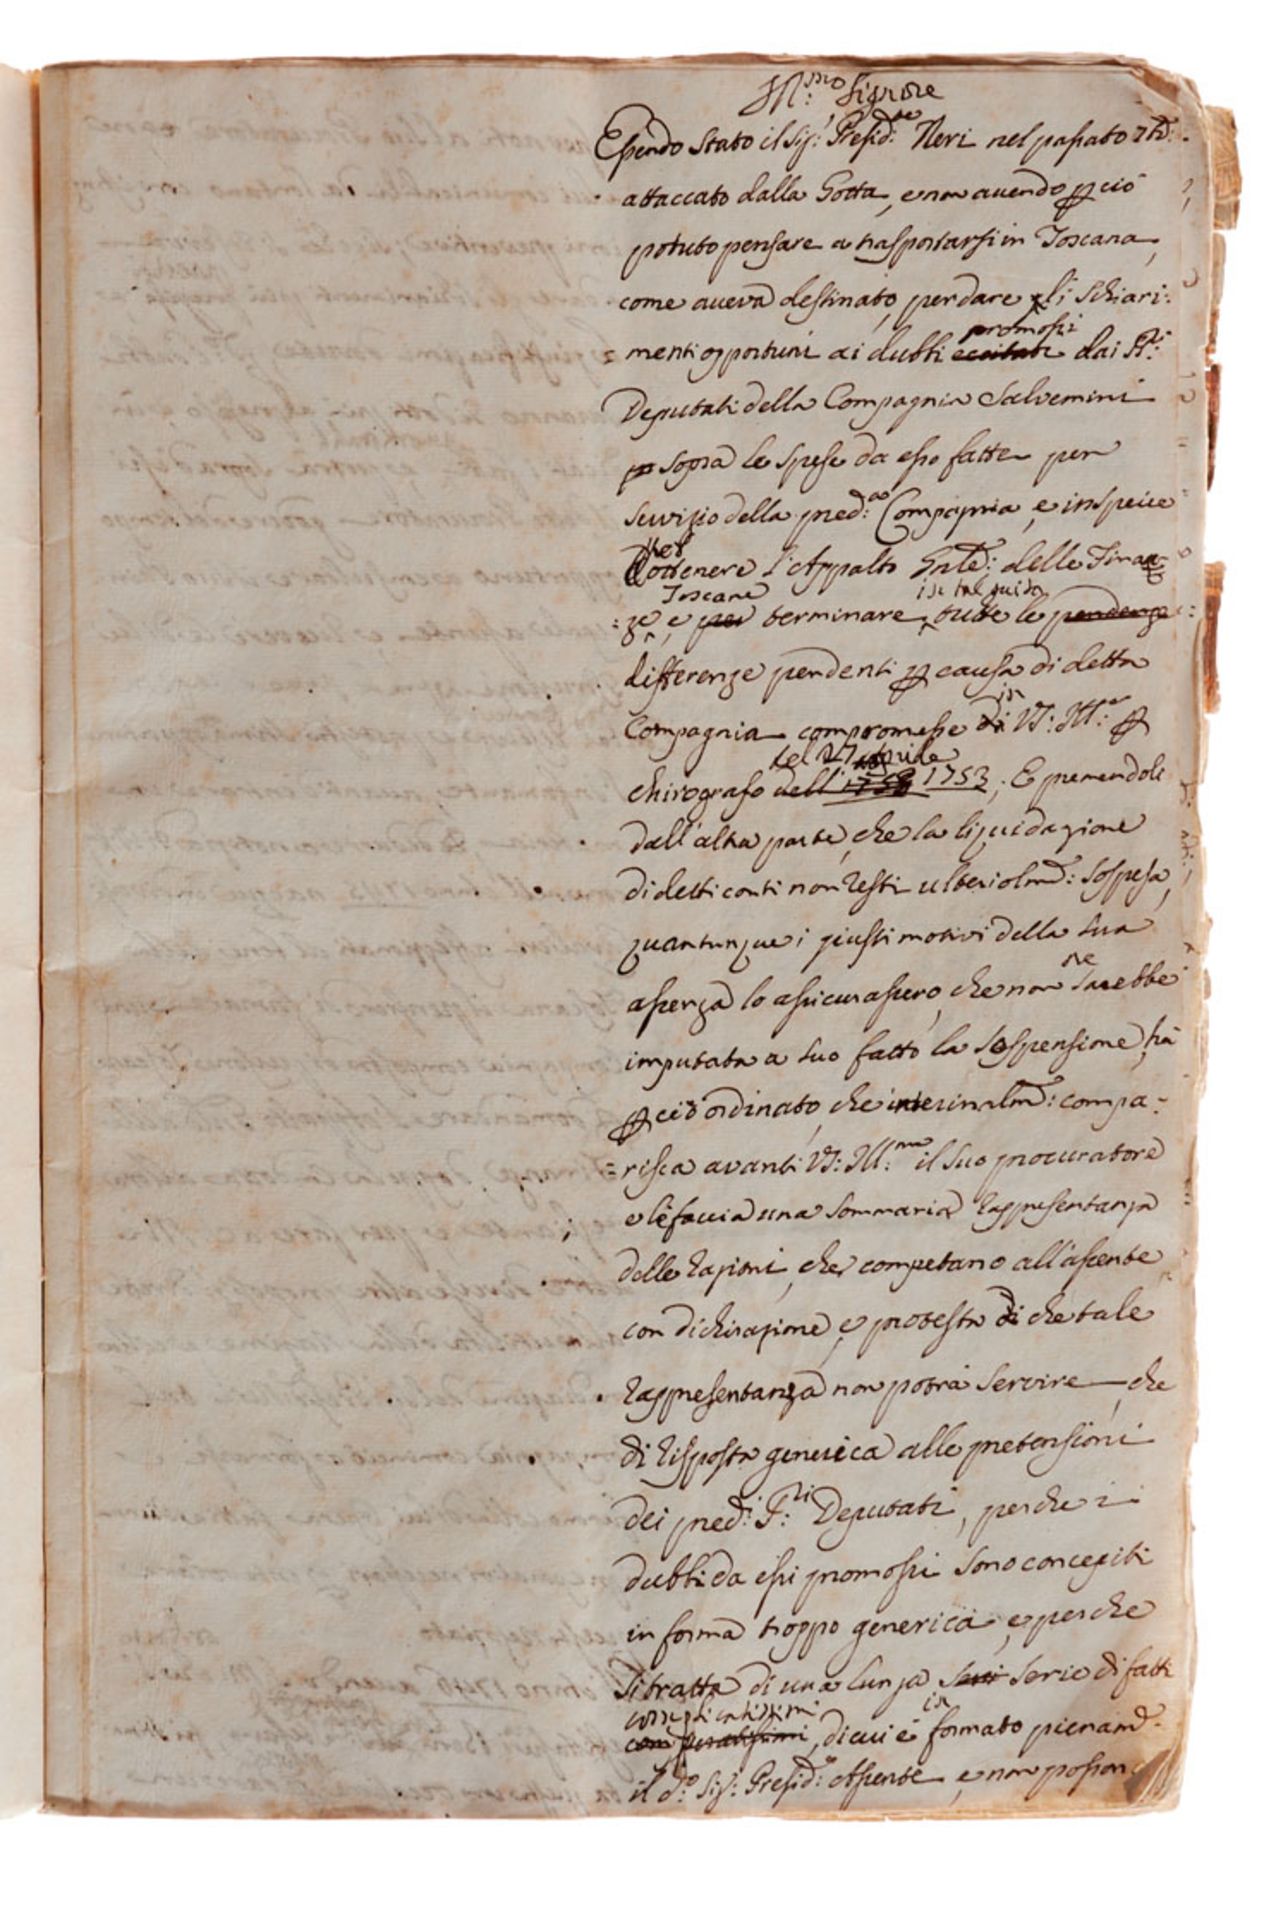 Ill:mo Signore
Essendo stato il Sig: Presid:te Neri nel passato
attaccato dalla Gotta, e non avendo p ciò
potuto pensare a trasportarsi in Toscana,
come aveva destinato, per dare gli schiari:
= menti opportuni ai dubbi eccitati promossi dai SS:ri
Deputati della Compagnia Salvemini
sopra le spese da esso fatte per
servizio della pred:a Compagnia, e in specie
per ottenere l'Appalto Gnle: delle Finan
= ze Toscane, e per terminare in tal guisa tutte le pendenze
differenze pendenti p causa di detta
Compagnia compromesse di in VS: Ill:ma p
chirografo dell' del 27 aprile 1753; E premendoli
dall'altra parte, che la liquidazione
di detti conti non resti ulteriolm: sospesa,
quantunque i giusti motivi della sua
assenza lo assicurassero, che non ne sarebbe
imputata a suo fatto la sospensione, ha
p ciò ordinato, che interinalm: compa-
= risca avanti VS: Ill:ma il suo procuratore
e le faccia una sommaria rappresentanza
delle ragioni, che competano all'assente
con dichiarazione, e protesta di che tale
rappresentanza non potrà servire, che
di risposta generica alle pretensioni
dei pred: SS:ri Deputati, perche i
dubbi da essi promossi sono concepiti
in forma troppo generica, e perche
si tratta di una lunga serie di fatti
complicatissimi, di cui è in formato pienam:
il d:o Sig: Presid:e Assente, e non posson